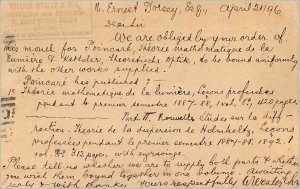 N. Ernest Dorsey, Esq., April 21/96
Dear Sir
We are obliged by your order of
this month for Poincaré, Théorie mathématique de la
lumière & Ketteler, Theoretische Optik, to be bound uniformly
with the other works supplied.
Poincaré has published:
1º Théorie mathématique de la lumière, Leçons professées
pendant le premier semestre 1887-88, 1 vol. 8º, 420 pages
Part II. Nouvelles études sur la dif-
fraction. Théorie de la dispersion de Helmholtz. Leçons
professées pendant le premier semestre 1891-92, 1
vol. 8º 312 pages, with engravings.
Please tell us whether we are to supply both parts & whether
you wish them bound together in one volume. Awaiting
reply & with thanks, Yours respectfully